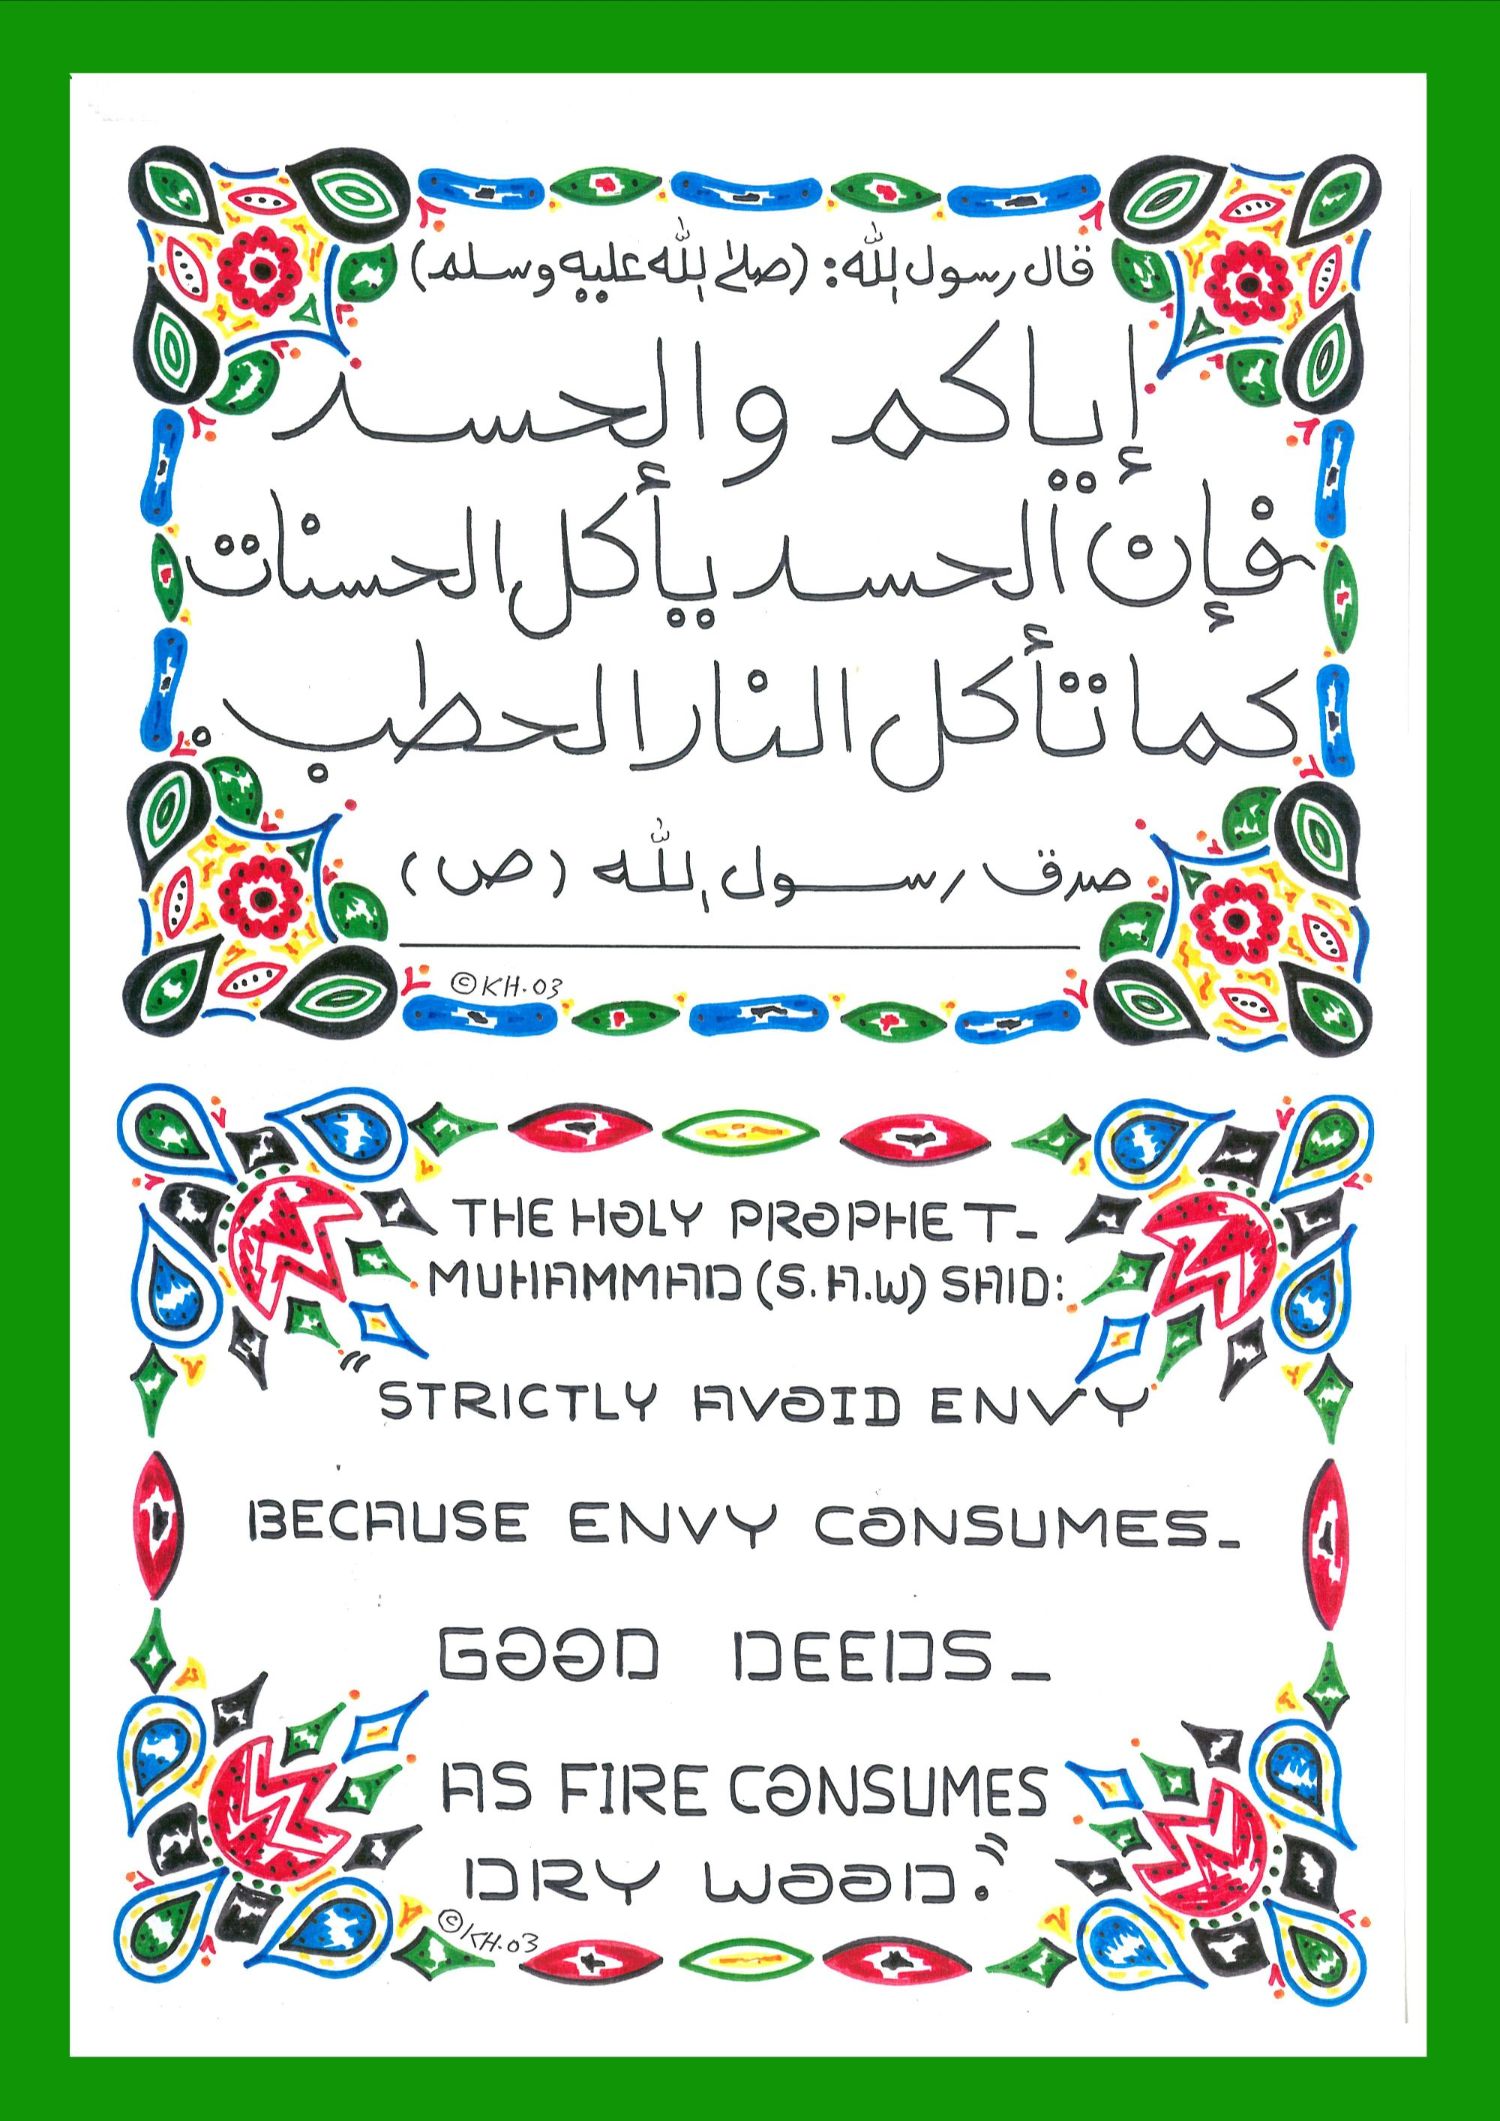 قال رسول الله: (صلى الله عليه وسلم)
إياكم والحسد
فإن الحسد يأكل الحسنات
كما تأكل النار الحطب
صدق رسول الله (ص)
©KH.03
THE HOLY PROPHET_
MUHAMMAD (S.A.W) SAID:
"STRICTLY AVOID ENVY
BECAUSE ENVY CONSUMES_
GOOD DEEDS_
AS FIRE CONSUMES
DRY WOOD."
©KH.03